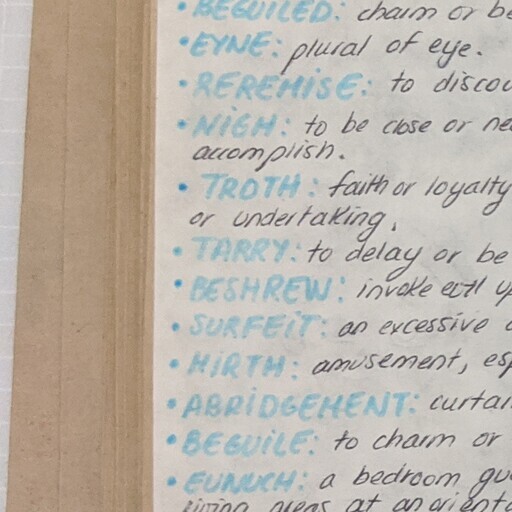 • BEGUILED: charm or be
• EYNE: plural of eye.
• REREMISE: to disco
• NIGH: to be close or ne
accomplish.
• TROTH: faith or loyalty
or undertaking.
• TARRY: to delay or be
• BESHREW: invoke evil up
• SURFEIT: an excessive
• MIRTH: amusement, esp
• ABRIDGEMENT: curtai
• BEGUILE: to charm or
• EUNUCH: a bedroom gu
living areas at an orient